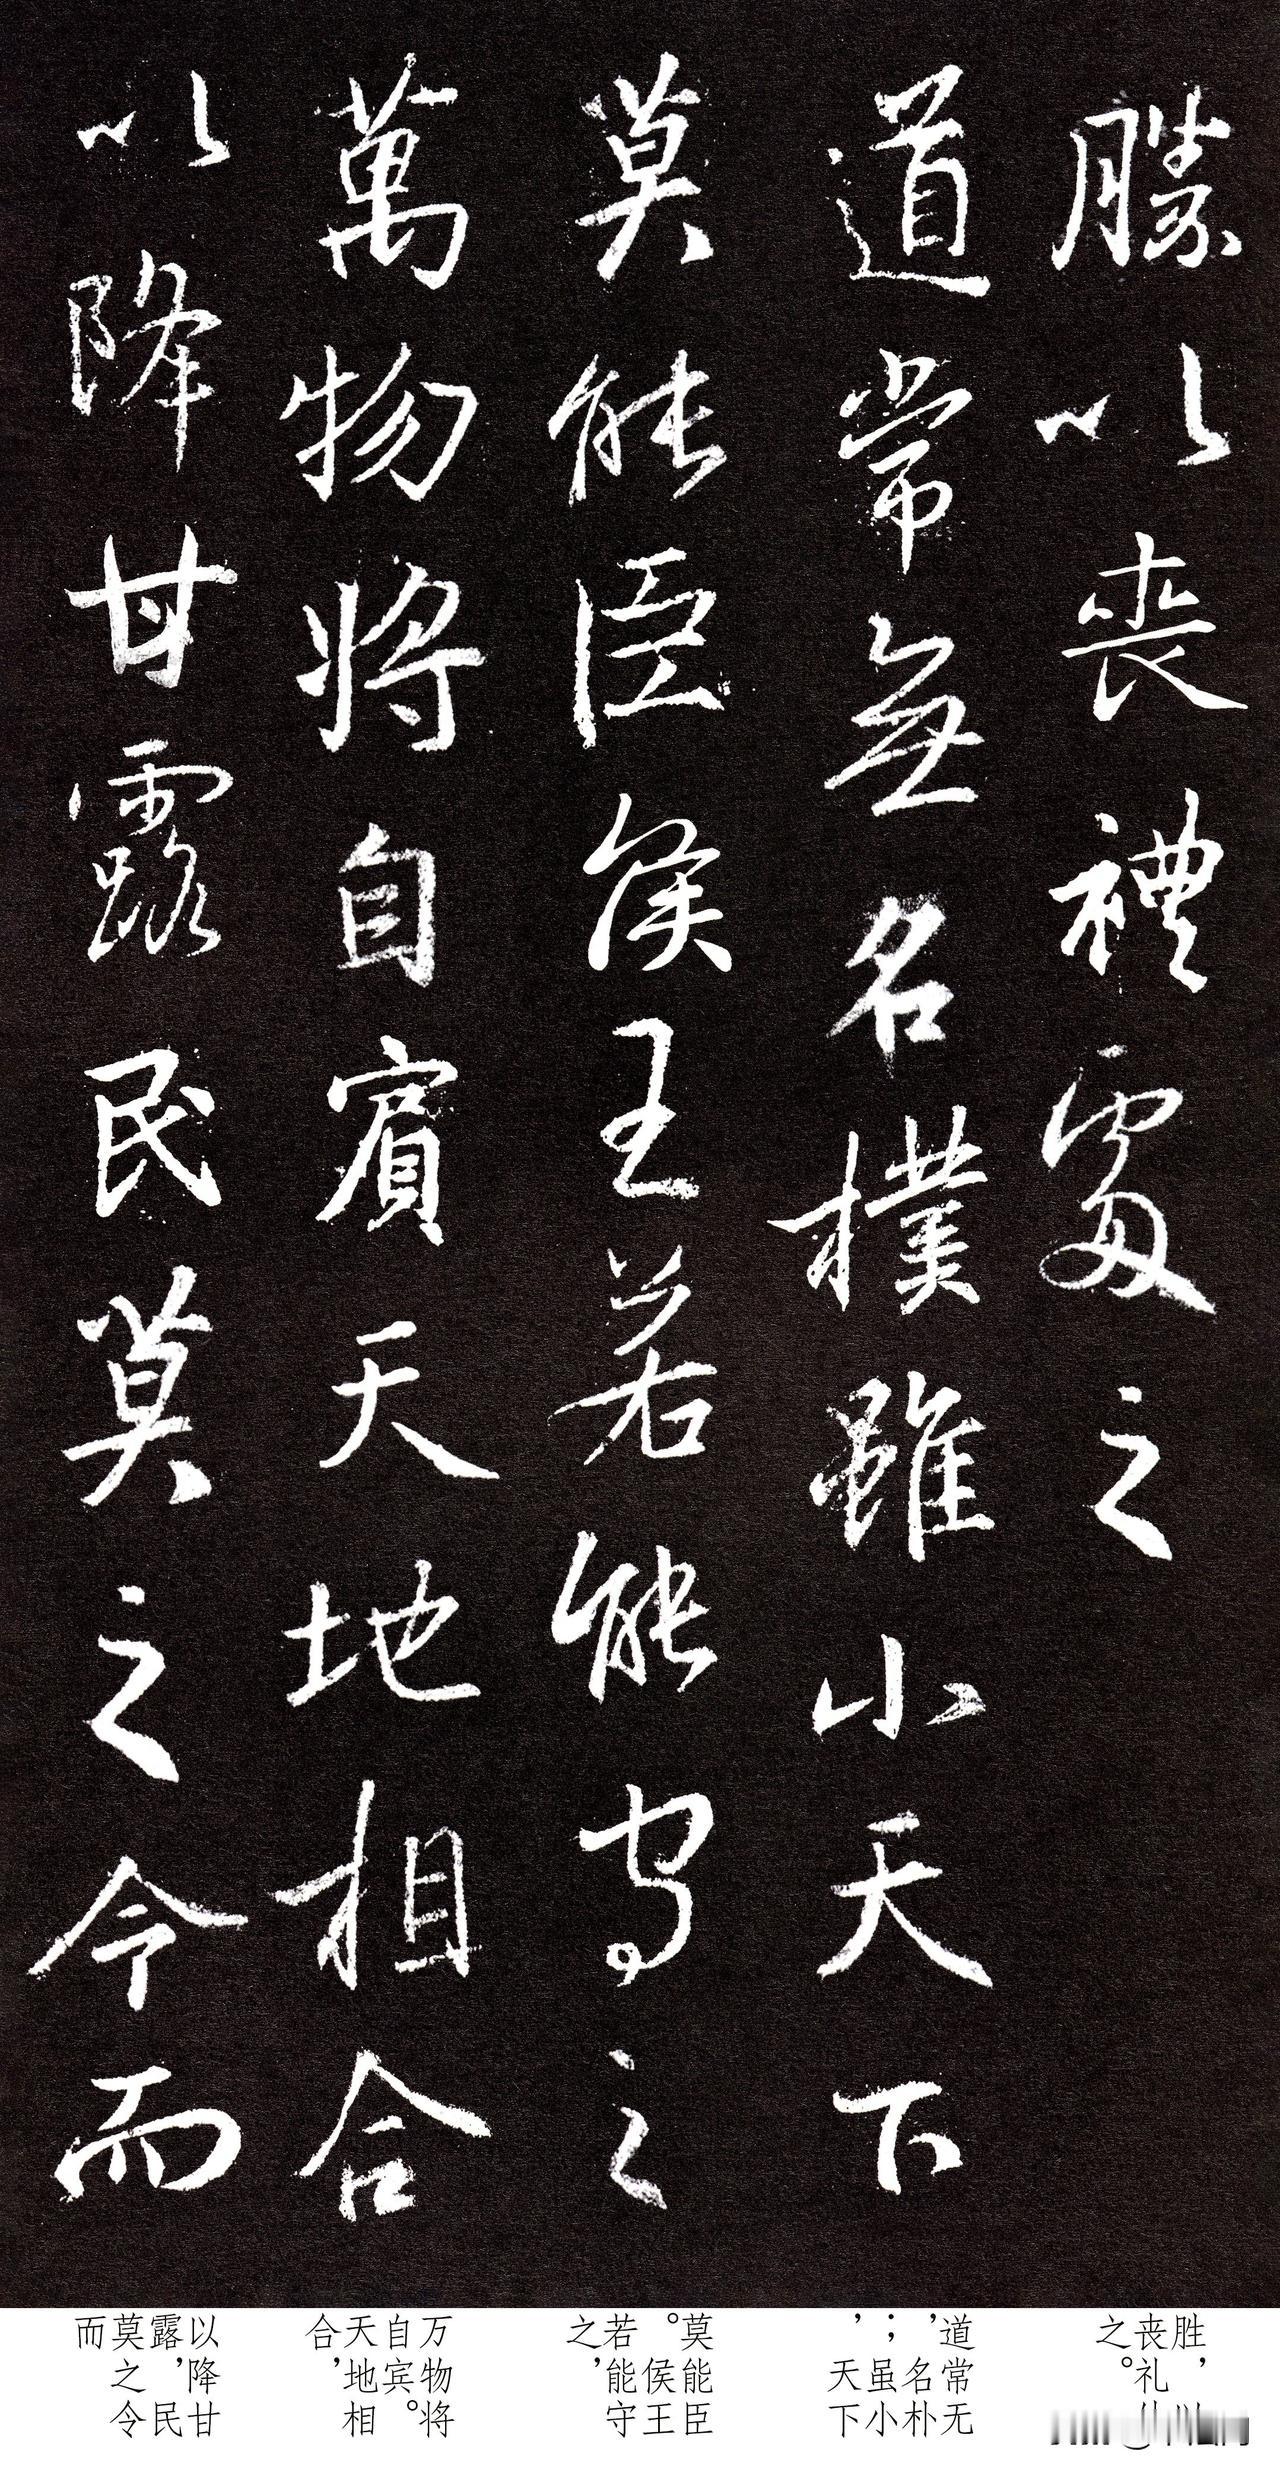 勝以喪禮處之
道常無名樸雖小天下
莫能臣侯王若能守之
萬物將自賓天地相合
以降甘露民莫之令而
胜，以
丧礼处
之。
道常无
，名朴
；虽小
，天下
莫能臣
。侯王
若能守
之，
万物将
自宾。
天地相
合，
以降甘
露，民
莫之令
而